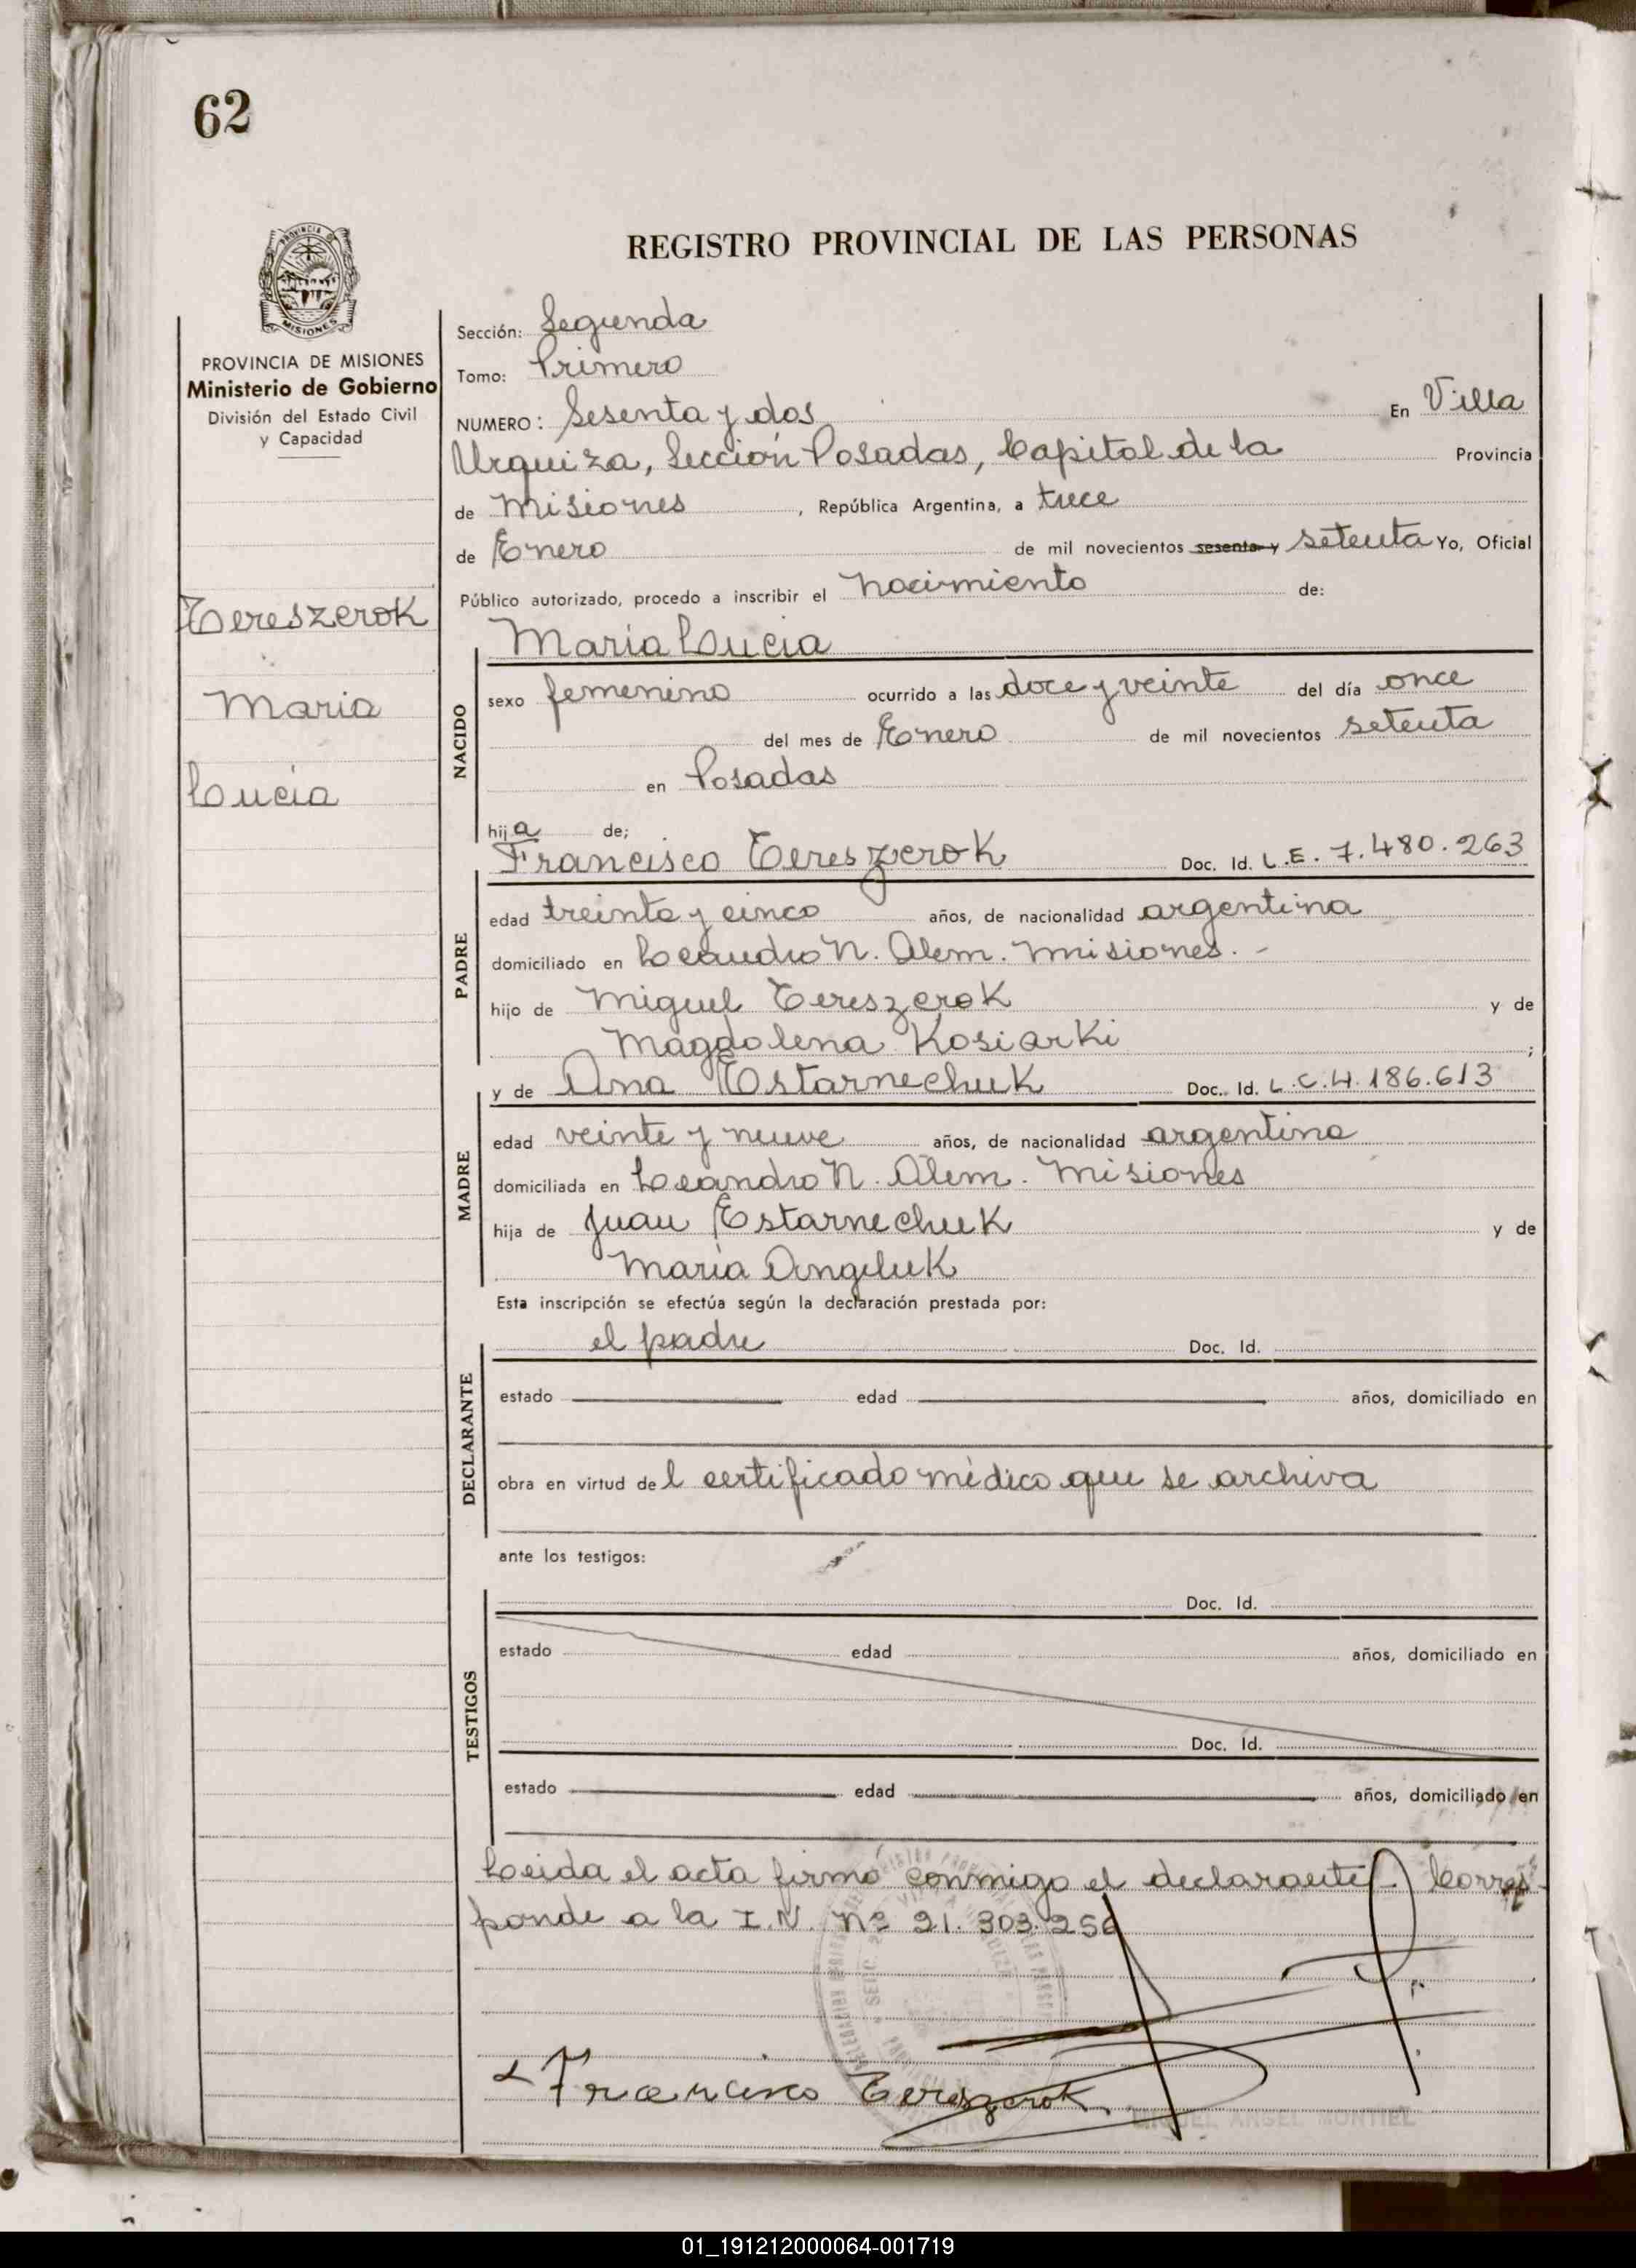 62
REGISTRO PROVINCIAL DE LAS PERSONAS
PROVINCIA DE MISIONES
MISIONES
PROVINCIA DE MISIONES
Ministerio de Gobierno
División del Estado Civil
y Capacidad
Tereszerok
Maria
Lucia
Sección: Segunda
Tomo: Primero
NUMERO: Sesenta y dos En Villa
Urquiza, Sección Posadas, Capital de la Provincia
de Misiones, República Argentina, a trece
de Enero de mil novecientos sesenta y setenta Yo, Oficial
Público autorizado, procedo a inscribir el nacimiento de:
Maria Lucia
NACIDO
sexo femenino ocurrido a las doce y veinte del día once
del mes de Enero de mil novecientos setenta
en Posadas
hija de;
Francisco Tereszerok Doc. Id. L.E. 7.480.263
PADRE
edad treinta y cinco años, de nacionalidad argentina
domiciliado en Leandro N. Alem. Misiones. -
hijo de Miguel Tereszerok y de
Magdalena Kosiarki ;
y de Ana Estarnechuk Doc. Id. L.C. 4.186.613
MADRE
edad veinte y nueve años, de nacionalidad argentina
domiciliada en Leandro N. Alem. Misiones
hija de Juan Estarnechuk y de
María Angeluk
Esta inscripción se efectúa según la declaración prestada por:
el padre Doc. Id.
DECLARANTE
estado edad años, domiciliado en
obra en virtud del certificado médico que se archiva
ante los testigos:
Doc. Id.
TESTIGOS
estado edad años, domiciliado en
Doc. Id.
estado edad años, domiciliado en
Leida el acta firmó conmigo el declarante. Corres-
ponde a la I.N. Nº 21.303.256
Francisco Tereszerok
MIGUEL ANGEL MONTIEL
01_191212000064-001719